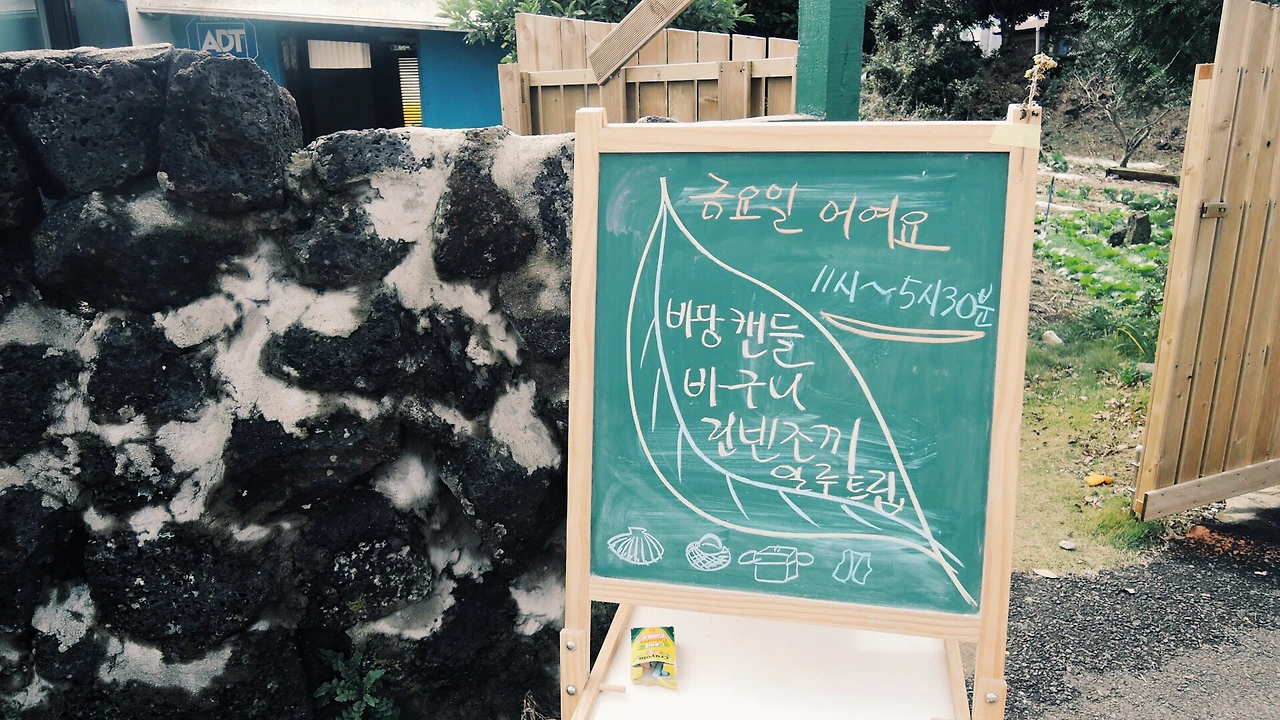 ADT
금요일 여여요
11시~5시30분
바당캔들
바구니
린넨조끼
얼루트립
Crayola